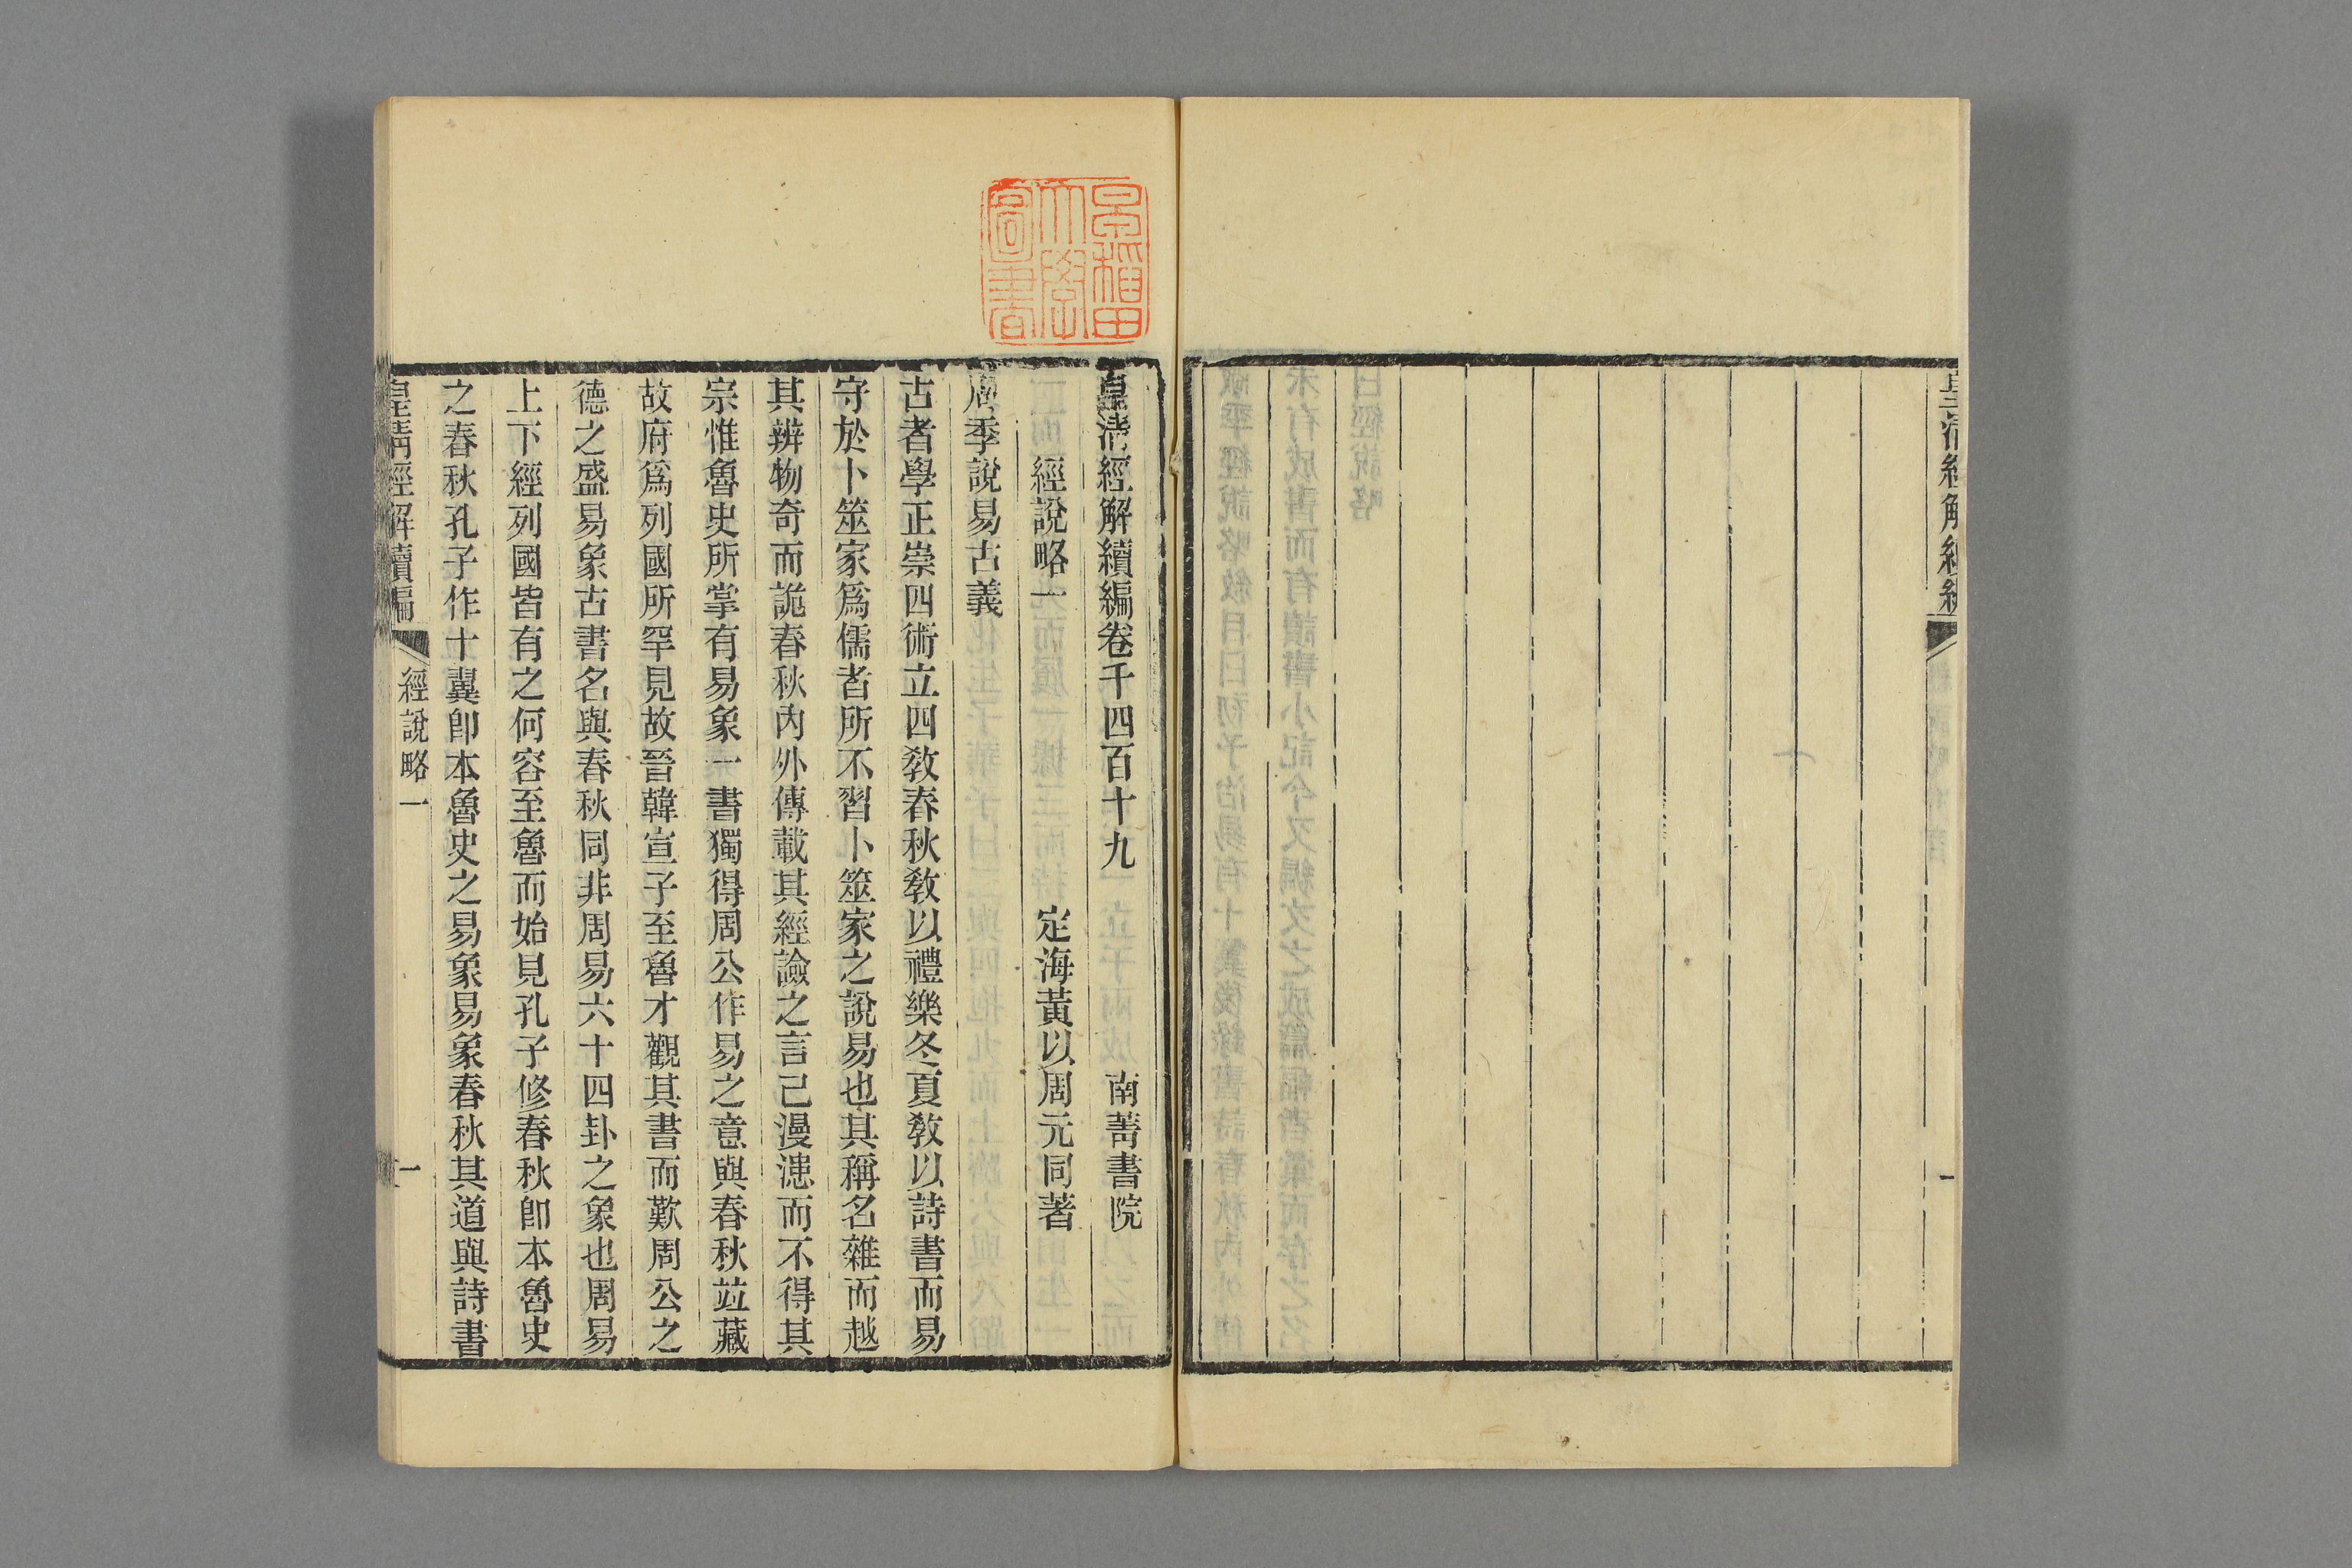 皇清經解續編
一
早稲田
大學
圖書
皇清經解續編卷千四百十九 南菁書院
經說略一 定海黃以周元同著
周季說易古義
古者學正崇四術立四敎春秋敎以禮樂冬夏敎以詩書而易
守於卜筮家爲儒者所不習卜筮家之說易也其稱名雜而越
其辨物奇而詭春秋內外傳載其經譣之言已漫漶而不得其
宗惟魯史所掌有易象一書獨得周公作易之意與春秋竝藏
故府爲列國所罕見故晉韓宣子至魯才觀其書而歎周公之
德之盛易象古書名與春秋同非周易六十四卦之象也周易
上下經列國皆有之何容至魯而始見孔子修春秋卽本魯史
之春秋孔子作十翼卽本魯史之易象易象春秋其道與詩書
皇淸經解續編 經說略一 一